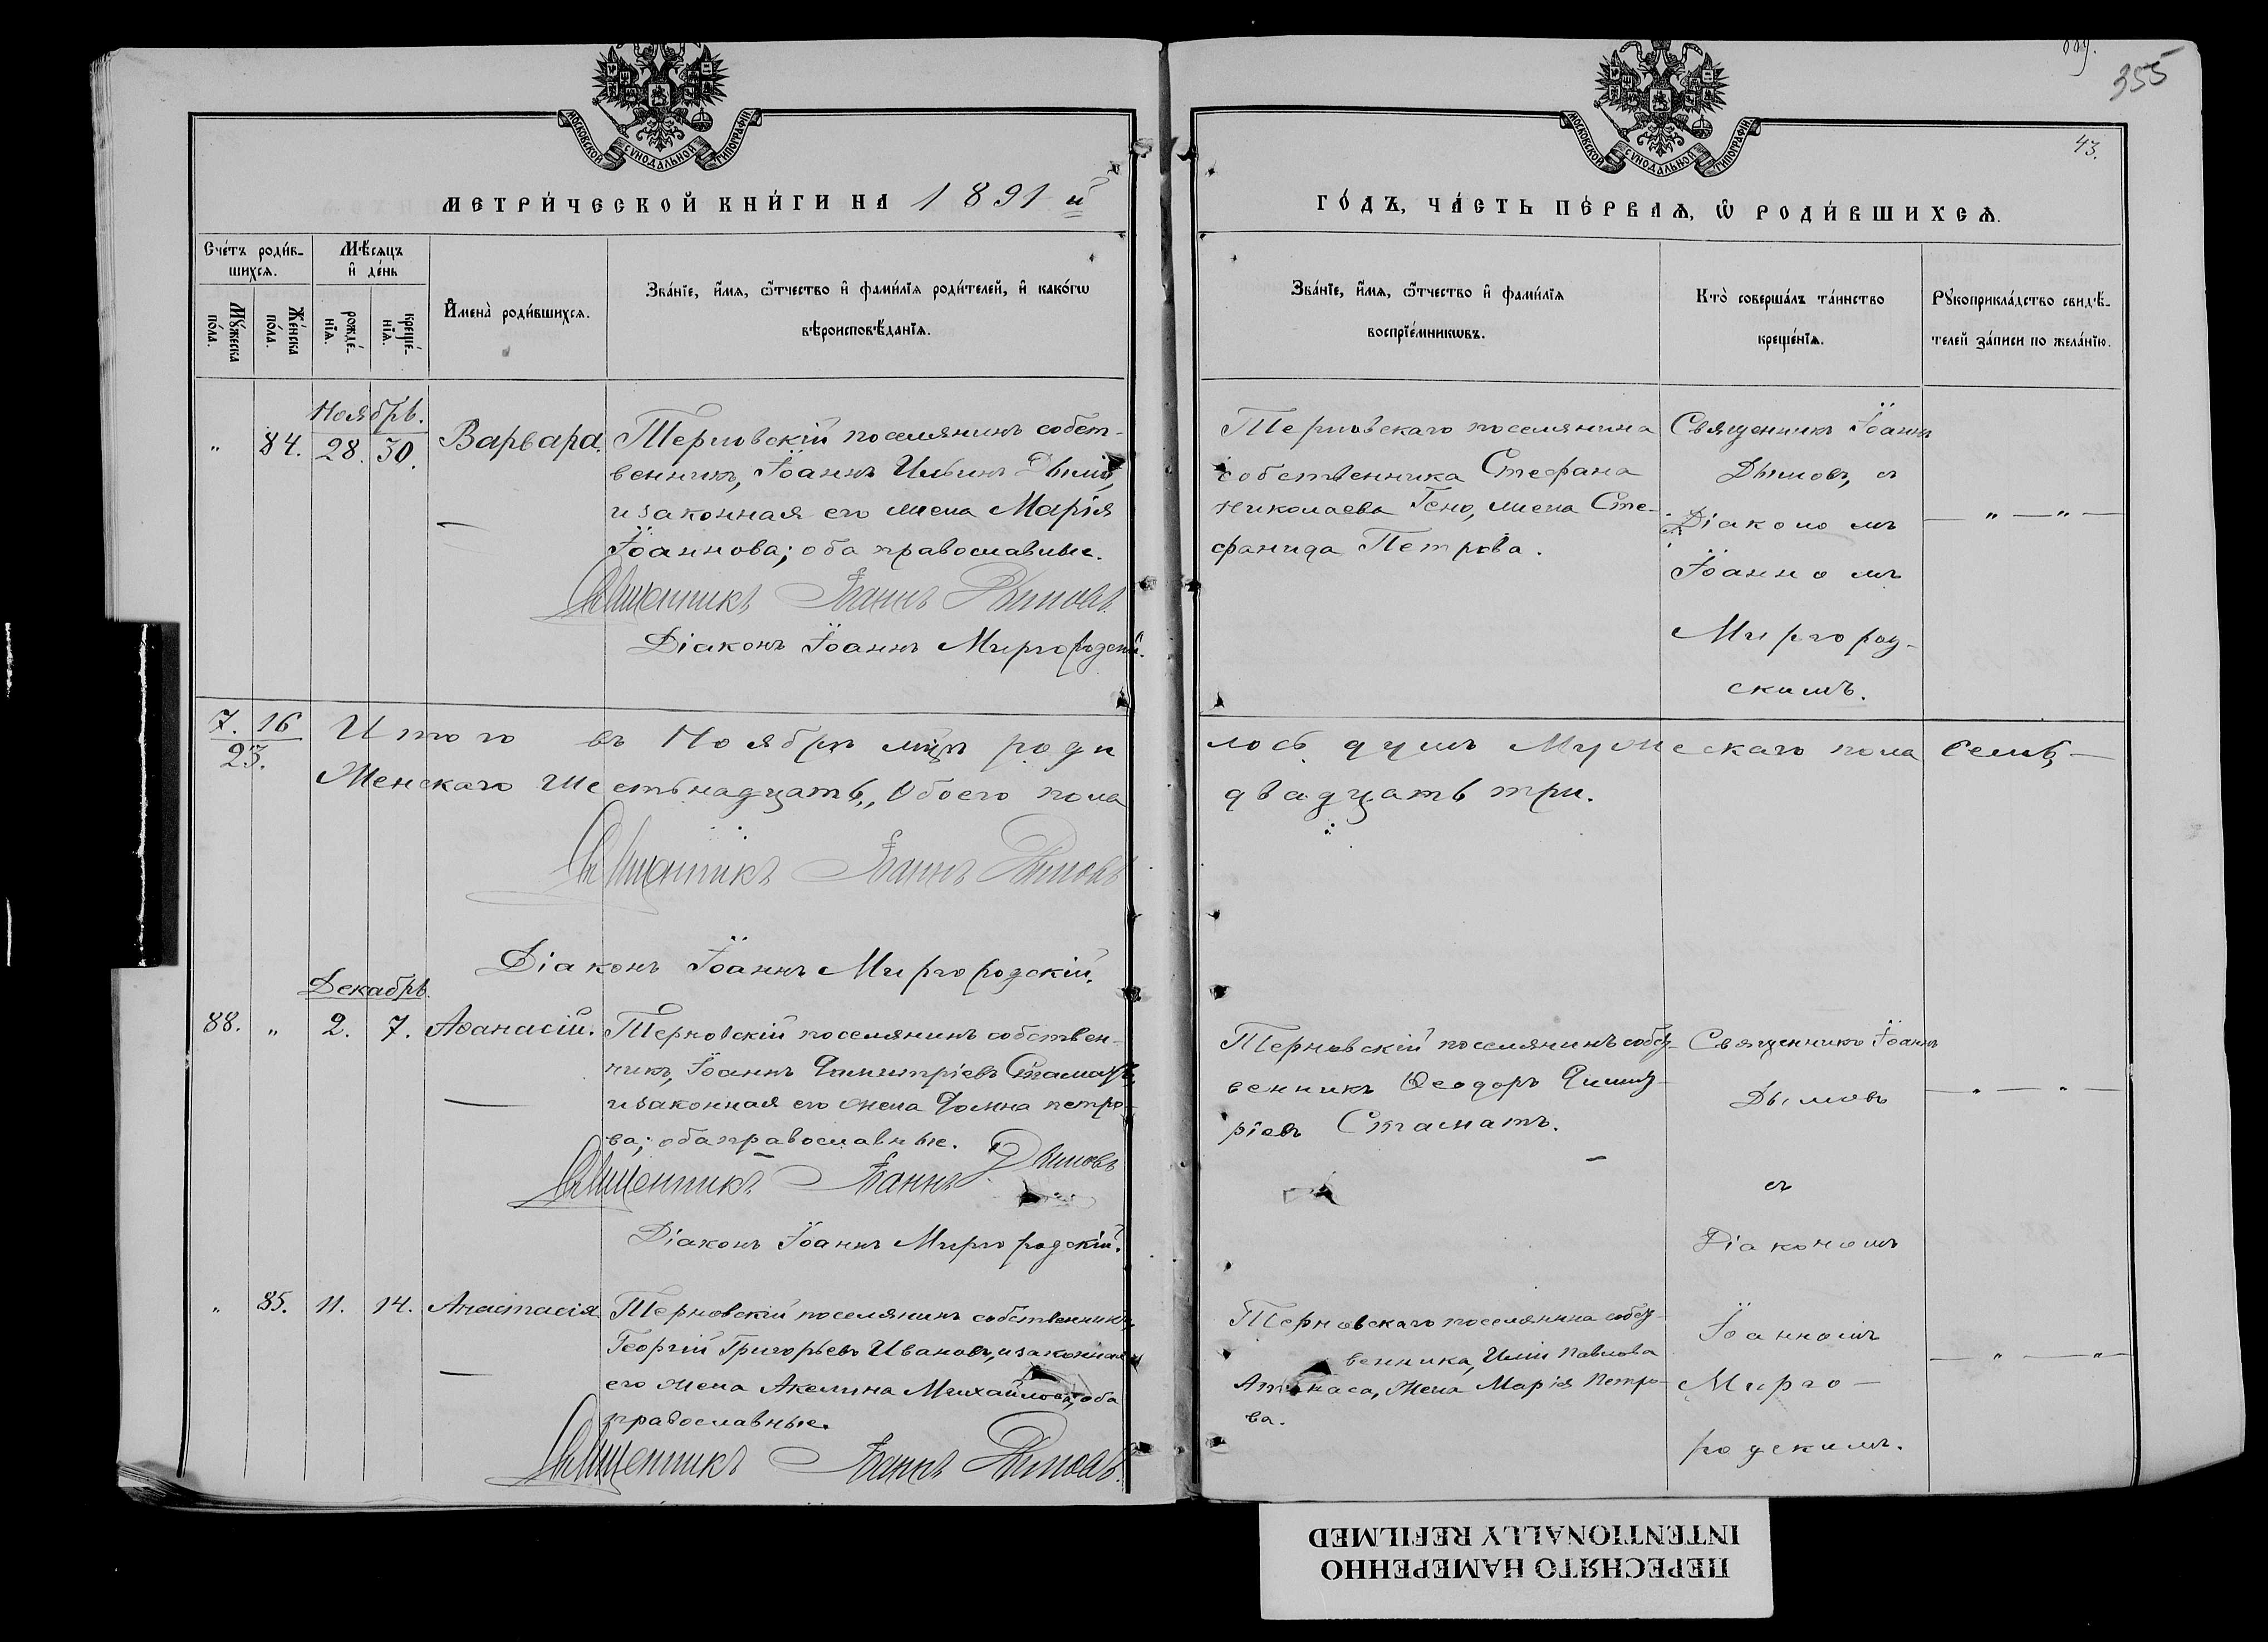 355
43.
МОСКОВСКОЙ СѴНОДАЛЬНОЙ ТИПОГРАФІИ
МОСКОВСКОЙ СѴНОДАЛЬНОЙ ТИПОГРАФІИ
МЕТРИ́ЧЕСКОЙ КНИ́ГИ НА 1891 й
ГО́ДЪ, ЧА́СТЬ ПЕ́РВАѦ, Ѿ РОДИ́ВШИХСѦ.
Сче́тъ роди́в-
шихсѧ.
Мꙋ́жеска
по́ла.
Же́нска
по́ла.
Мѣ́сѧцъ
и҆ де́нь
рожде́-
нїѧ.
креще́-
нїѧ.
И҆мена̀ роди́вшихсѧ.
Зва́нїе, и҆́мѧ, ѻ҆́тчество и҆ фами́лїѧ роди́телей, и҆ како́гѡ
вѣроисповѣ́данїѧ.
Зва́нїе, и҆́мѧ, ѻ҆́тчество и҆ фами́лїѧ
воспрїе́мникѡвъ.
Кто̀ соверша́лъ та́инство
креще́нїѧ.
Рꙋкоприкла́дство свидѣ́-
телей за́писи по жела́нїю.
Ноябрь.
" 84. 28. 30. Варвара.
Терновскій поселянинъ собст-
венникъ, Іоаннъ Ильинъ
и законная его жена Марія
Іоаннова; оба православные.
Священникъ Іоаннъ Дымовъ
Діаконъ Іоаннъ Миргородскій.
Терновскаго поселянина
собственника Стефана
Николаева Гено, жена Сте-
фанида Петрова.
Священникъ Іоаннъ
Дымовъ, съ
Діакономъ
Іоанномъ
Миргород-
скимъ.
— " — " —
7. 16
23.
Итого въ Ноябрѣ мцѣ роди
лось душъ Мужескаго пола Семь,—
Женскаго Шестьнадцать, Обоего пола
двадцать три.
Священникъ Іоаннъ Дымовъ
Діаконъ Іоаннъ Миргородскій.
Декабрь.
88. " 2. 7. Аѳанасій.
Терновскій поселянинъ собствен-
никъ, Іоаннъ Димитріевъ Стаматъ,
и законная его жена Домна Петро-
ва; оба православные.
Священникъ Іоаннъ Дымовъ
Діаконъ Іоаннъ Миргородскій.
Терновскій поселянинъ собст-
венникъ Ѳеодоръ Димит-
ріевъ Стаматъ.
Священникъ Іоаннъ
Дымовъ
съ
Діакономъ
— " — " —
" 85. 11. 14. Анастасія
Терновскій поселянинъ собственникъ,
Георгій Григорьевъ Ивановъ, и законная
его жена Акелина Михайлова; оба
православные.
Священникъ Іоаннъ Дымовъ.
Терновскаго поселянина собст-
венника, Иліи Павлова
Атанаса, жена Марія Петро-
ва.
Іоанномъ
Мирго-
родскимъ.
— " — " —
ПЕРЕСНЯТО НАМЕРЕННО
INTENTIONALLY REFILMED